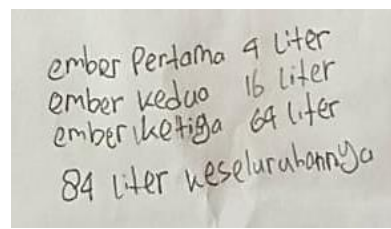 ember Pertama 4 liter
ember kedua 16 liter
ember ketiga 64 liter
84 liter keseluruhannya